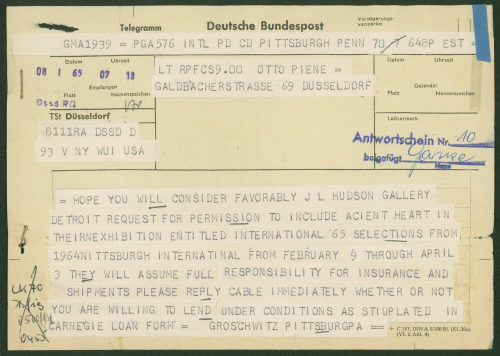 Telegramm
Deutsche Bundespost
Verzögerungs-
vermerke
GMA1939 = PGA576 INTL PD CD PITTSBURGH PENN 70/7 648P EST =
08 I 65 07 18
Platz
Empfangen
Namenszeichen
Dssd RD
LT RPFCS9.00 OTTO PIENE =
GALDBACHERSTRASSE 69 DUSSELDORF
Datum
Uhrzeit
Gesendet
Platz
Namenszeichen
TSt Düsseldorf
Leitvermerk
8111RA DSSD D
93 V NY WUI USA
Antwortschein Nr. 10
beigefügt
= HOPE YOU WILL CONSIDER FAVORABLY J L HUDSON GALLERY
DETROIT REQUEST FOR PERMISSION TO INCLUDE ACIENT HEART IN
THEIRNEXHIBITION ENTITLED INTERNATIONAL '65 SELECTIONS FROM
1964NITTSBURGH INTERNATINAL FROM FEBRUARY 9 THROUGH APRIL
3 THEY WILL ASSUME FULL RESPONSIBILITY FOR INSURANCE AND
SHIPMENTS PLEASE REPLY CABLE IMMEDIATELY WHETHER OR NOT
YOU ARE WILLING TO LEND UNDER CONDITIONS AS STIUPLATED IN
CARNEGIE LOAN FORM = GROSCHWITZ PITTSBURGPA ==